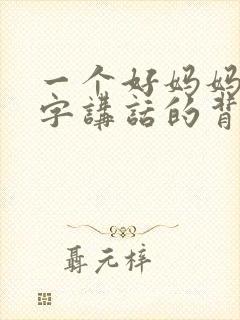 一个好妈妈
字講話的背
聶元梓